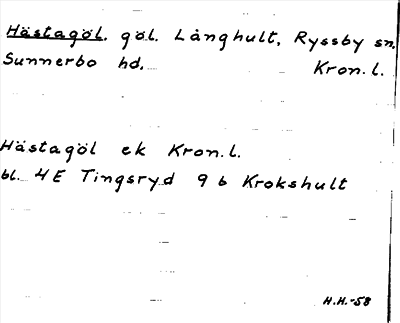 Hästagöl. göl. Långhult, Ryssby sn.
Sunnerbo hd. Kron.l.
Hästagöl ek Kron.l.
bl. 4E Tingsryd 9 b Krokshult
H.H.-58